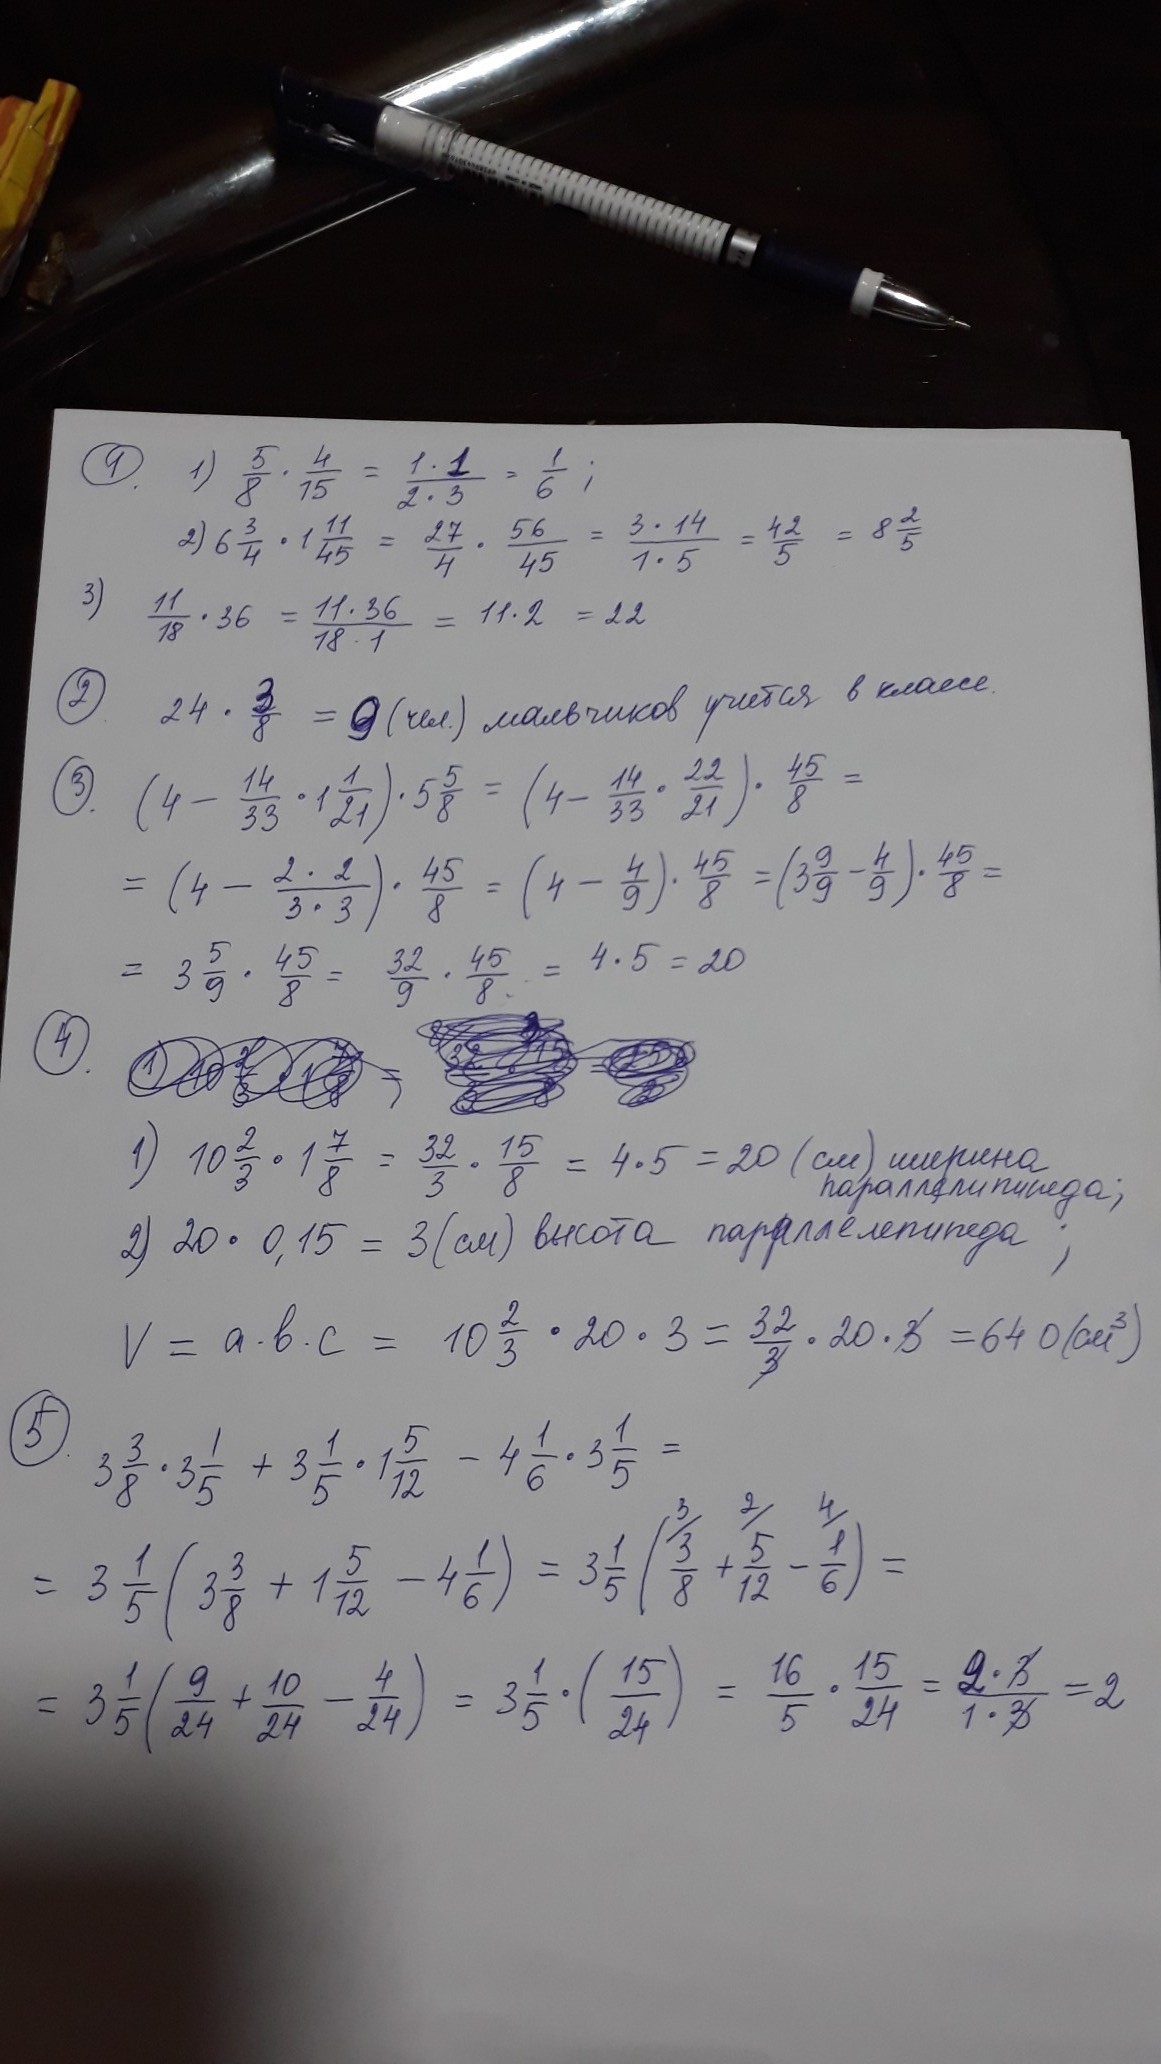 1. 1) 5/8 · 4/15 = 1·1/2·3 = 1/6;
2) 6 3/4 · 1 11/45 = 27/4 · 56/45 = 3·14/1·5 = 42/5 = 8 2/5
3) 11/18 · 36 = 11·36/18·1 = 11·2 = 22
2. 24 · 3/8 = 9 (чел.) мальчиков учится в классе.
3. (4 – 14/33 · 1 1/21) · 5 5/8 = (4 – 14/33 · 22/21) · 45/8 =
= (4 – 2·2/3·3) · 45/8 = (4 – 4/9) · 45/8 = (3 9/9 – 4/9) · 45/8 =
= 3 5/9 · 45/8 = 32/9 · 45/8 = 4·5 = 20
4.
1) 10 2/3 · 1 7/8 = 32/3 · 15/8 = 4·5 = 20 (см) ширина
параллелипипеда;
2) 20 · 0,15 = 3 (см) высота параллелепипеда;
V = a·b·c = 10 2/3 · 20 · 3 = 32/3 · 20 · 3 = 640 (см³)
5. 3 3/8 · 3 1/5 + 3 1/5 · 1 5/12 – 4 1/6 · 3 1/5 =
3/ 2/ 4/
= 3 1/5 (3 3/8 + 1 5/12 – 4 1/6) = 3 1/5 (3/8 + 5/12 – 1/6) =
= 3 1/5 (9/24 + 10/24 – 4/24) = 3 1/5 · (15/24) = 16/5 · 15/24 = 2·3/1·3 = 2